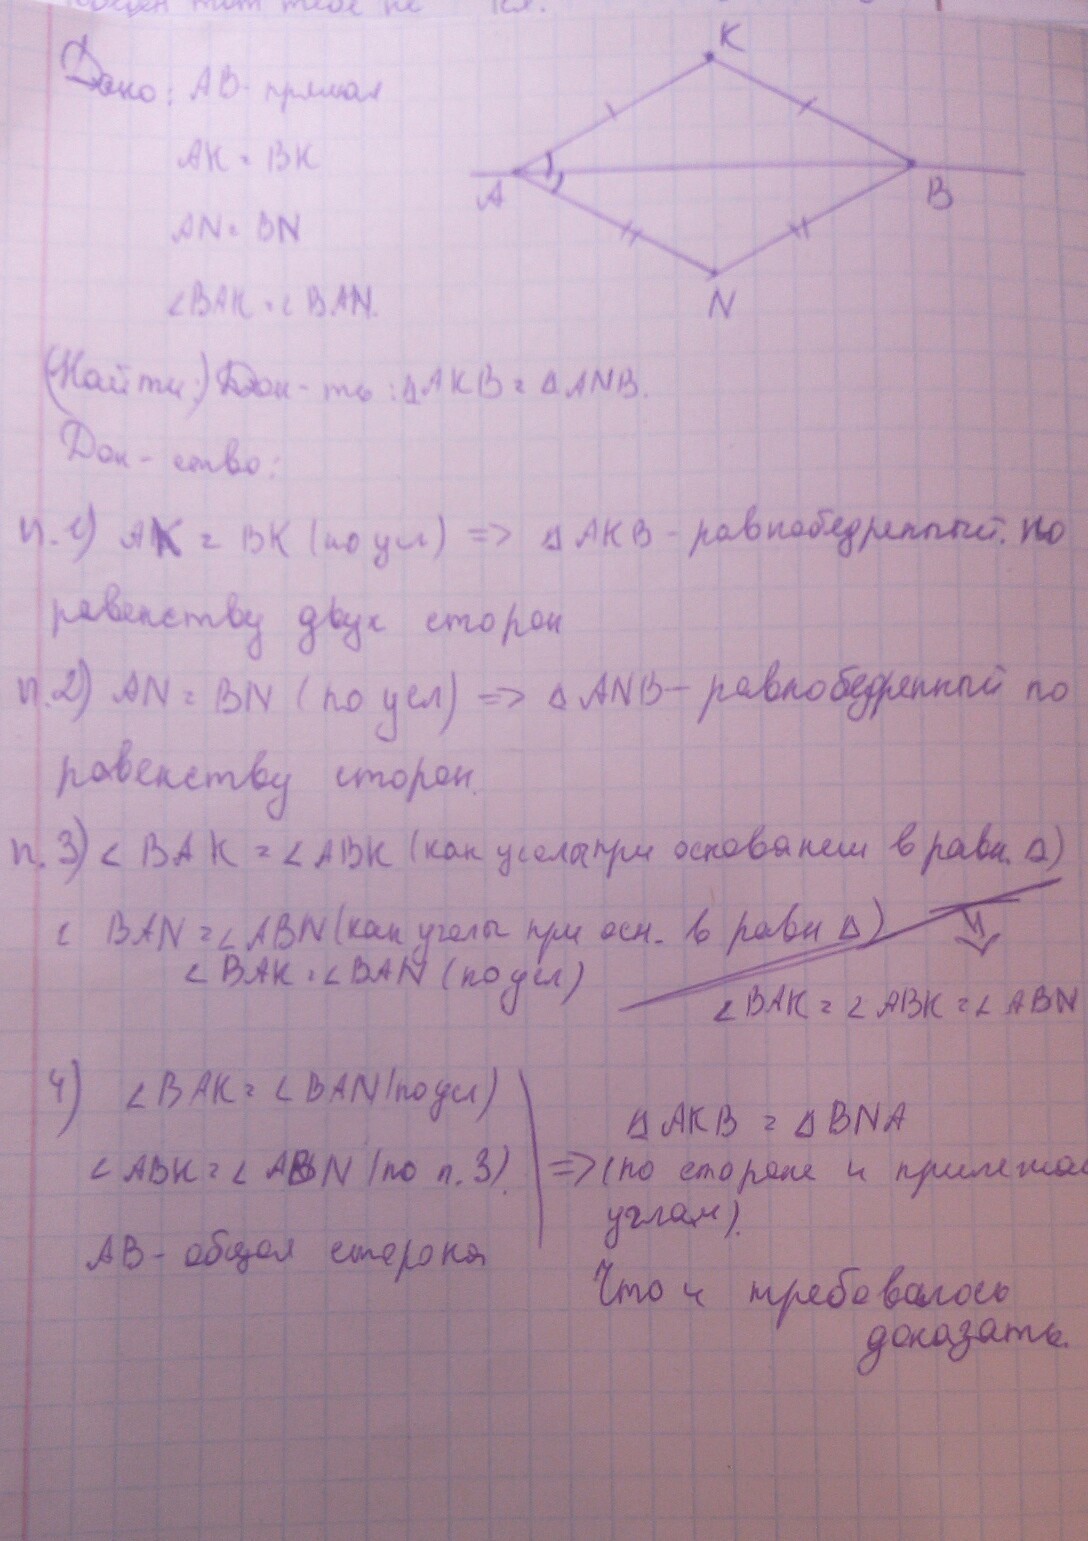 Дано: АВ- прямая
АК = ВК
AN = BN
∠ВАК = ∠BAN.
K
A
B
N
(Найти:) Док-ть: △АКВ = △ANB.
Док-ство:
п.1) АК = ВК (по усл) => △АКВ - равнобедренный. по
равенству двух сторон
п.2) AN = BN (по усл) => △ANB - равнобедренный по
равенству сторон.
п.3) ∠ВАК = ∠АВК (как углы при основании в равн. △)
∠ BAN = ∠ABN (как углы при осн. в равн △)
∠ВАК = ∠BAN (по усл)
∠ВАК = ∠АВК = ∠ABN
4) ∠ВАК = ∠BAN (по усл)
∠АВК = ∠ABN (по п.3).
АВ - общая сторона
=>
△АКВ = △BNA
(по стороне и прилежа
углам).
Что и требовалось
доказать.